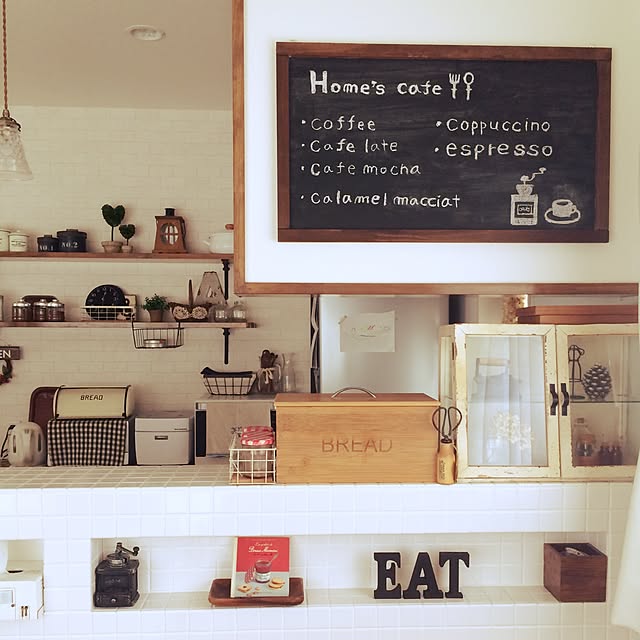 Home's cafe
• Coffee
• Cafe late
• Cafe mocha
• Calamel macciat
• Coppuccino
• espresso
NO.2
EN
BREAD
BREAD
EAT